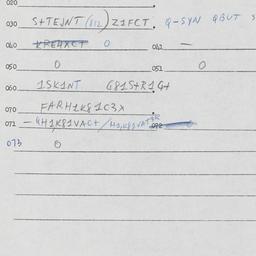 020
030 S+TEJNT (812) Z1FCT. Q-SYN QBUT S
040 KREHXCT 0 041 —
050 0 051 0
060 1SK1NT G81S+R1G+
070 FARH1K81C3X
071 - 4H1K81VAC+/ 072
073 0